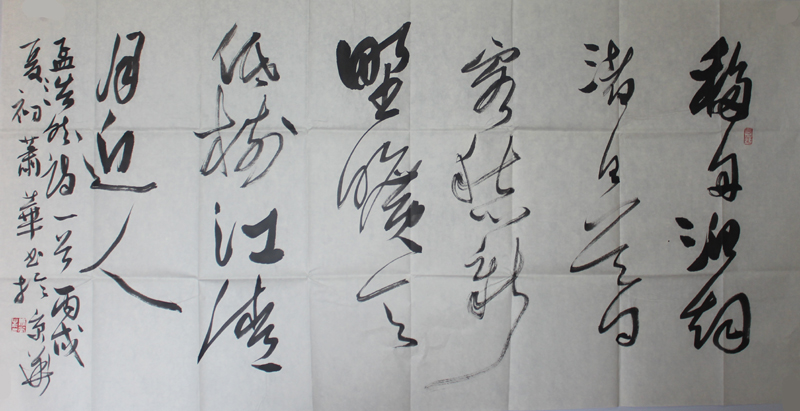 移舟泊烟
渚日暮
客愁新
野曠天
低樹江清
月近人
孟浩然詩一首丙戌
夏初蕭華书於京華